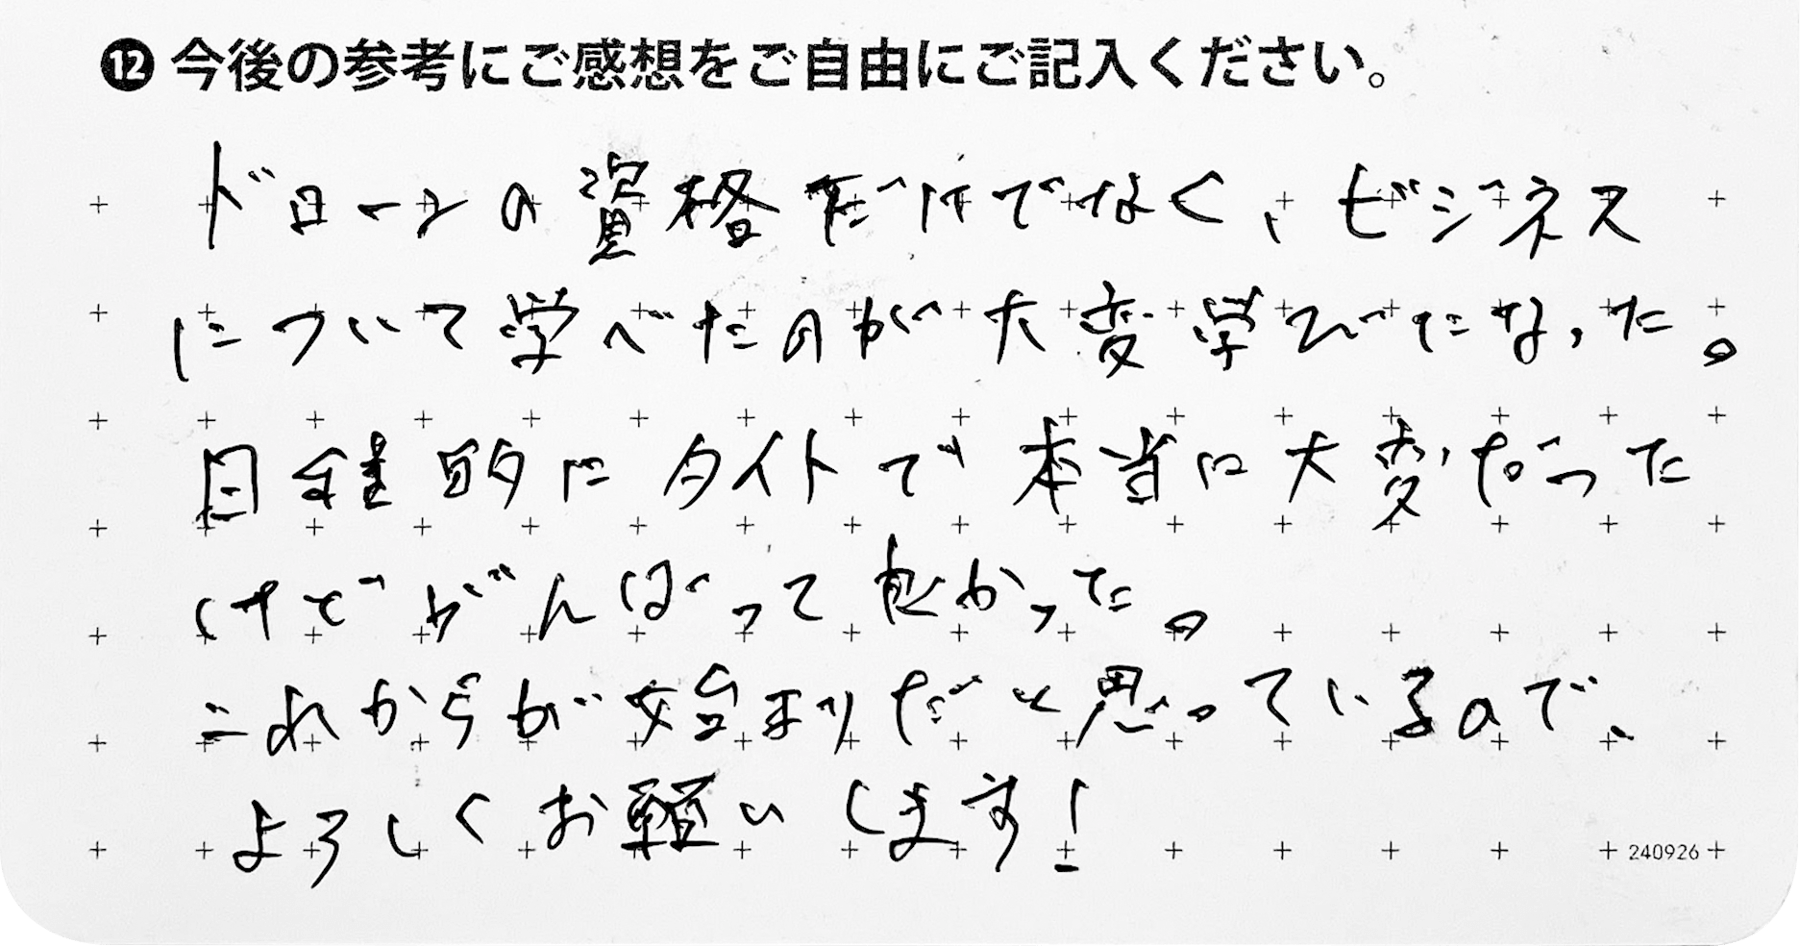 ⓬ 今後の参考にご感想をご自由にご記入ください。
ドローンの資格だけでなく、ビジネス
について学べたのが大変学びになった。
日程的にタイトで本当に大変だった
けどがんばって良かった。
これからが始まりだと思っているので、
よろしくお願いします!
240926